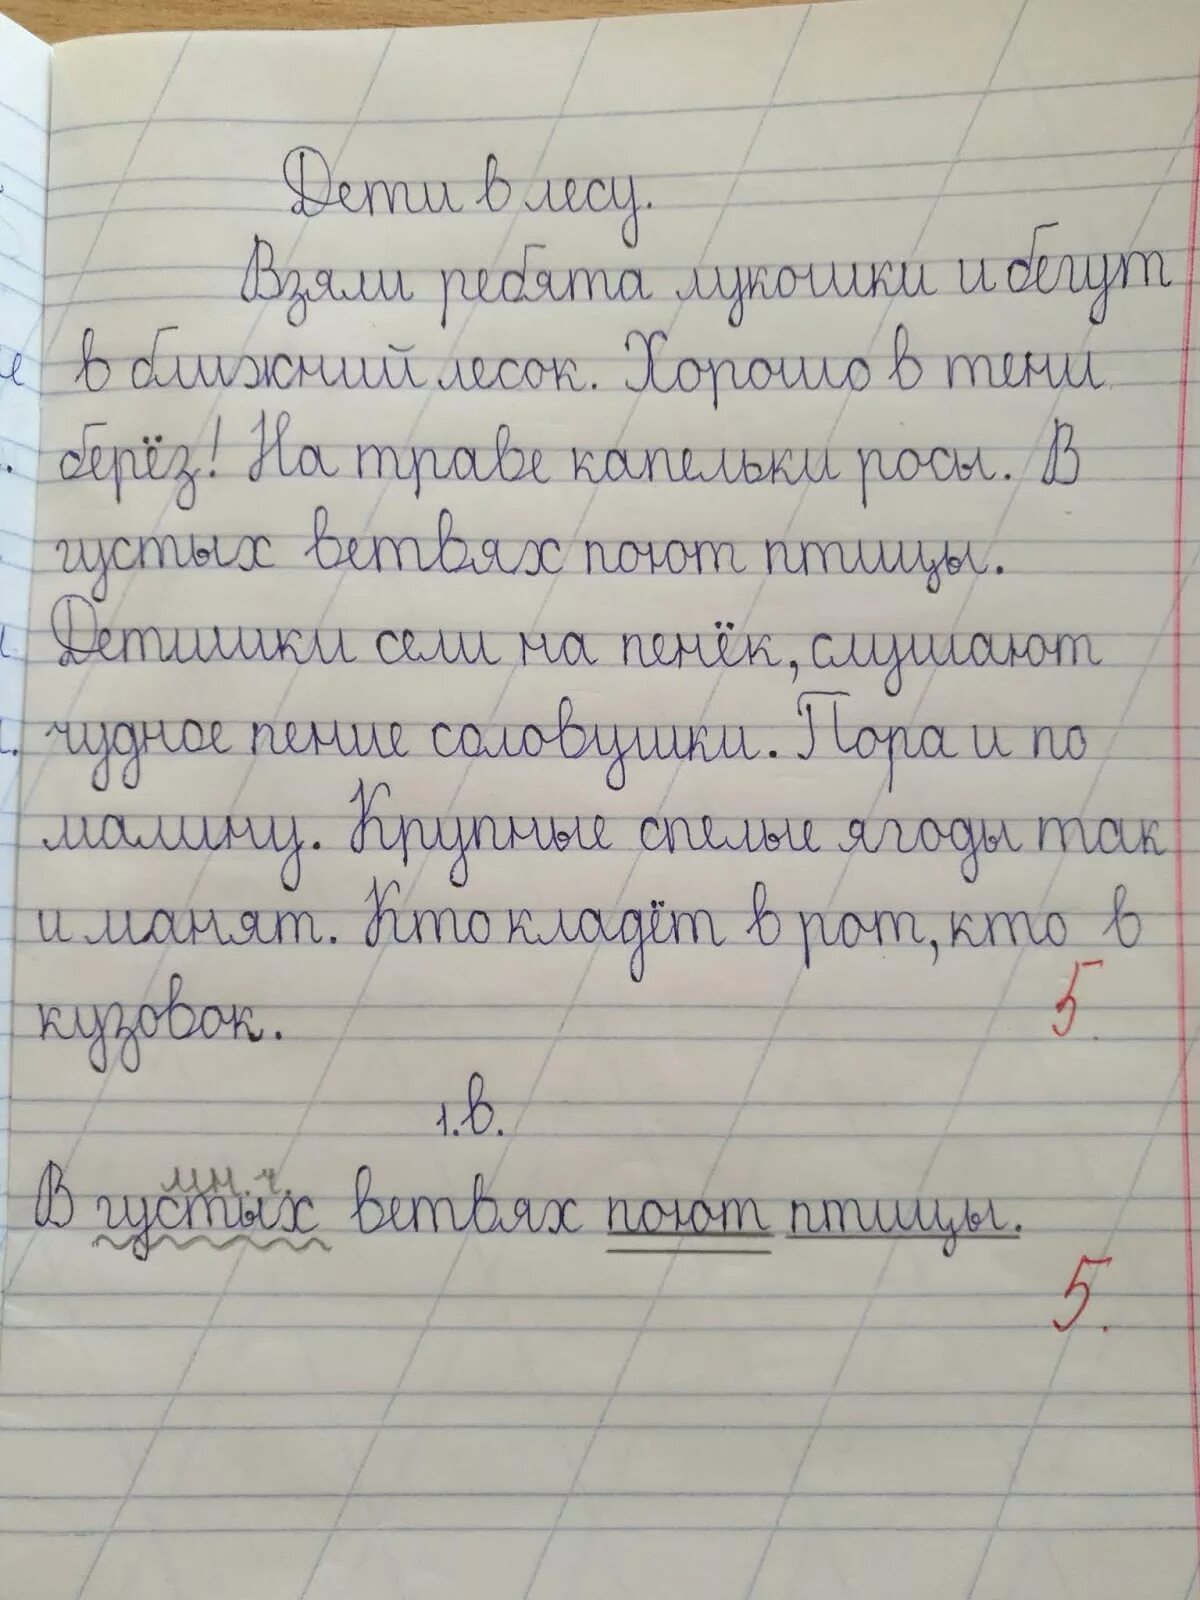 Дети в лесу.
Взяли ребята лукошки и бегут
в ближний лесок. Хорошо в тени
берёз! На траве капельки росы. В
густых ветвях поют птицы.
Детишки сели на пенёк, слушают
чудное пение соловушки. Пора и по
малину. Крупные спелые ягоды так
и манят. Кто кладёт в рот, кто в
кузовок.
5.
1.в.
мн.ч.
В густых ветвях поют птицы.
5.